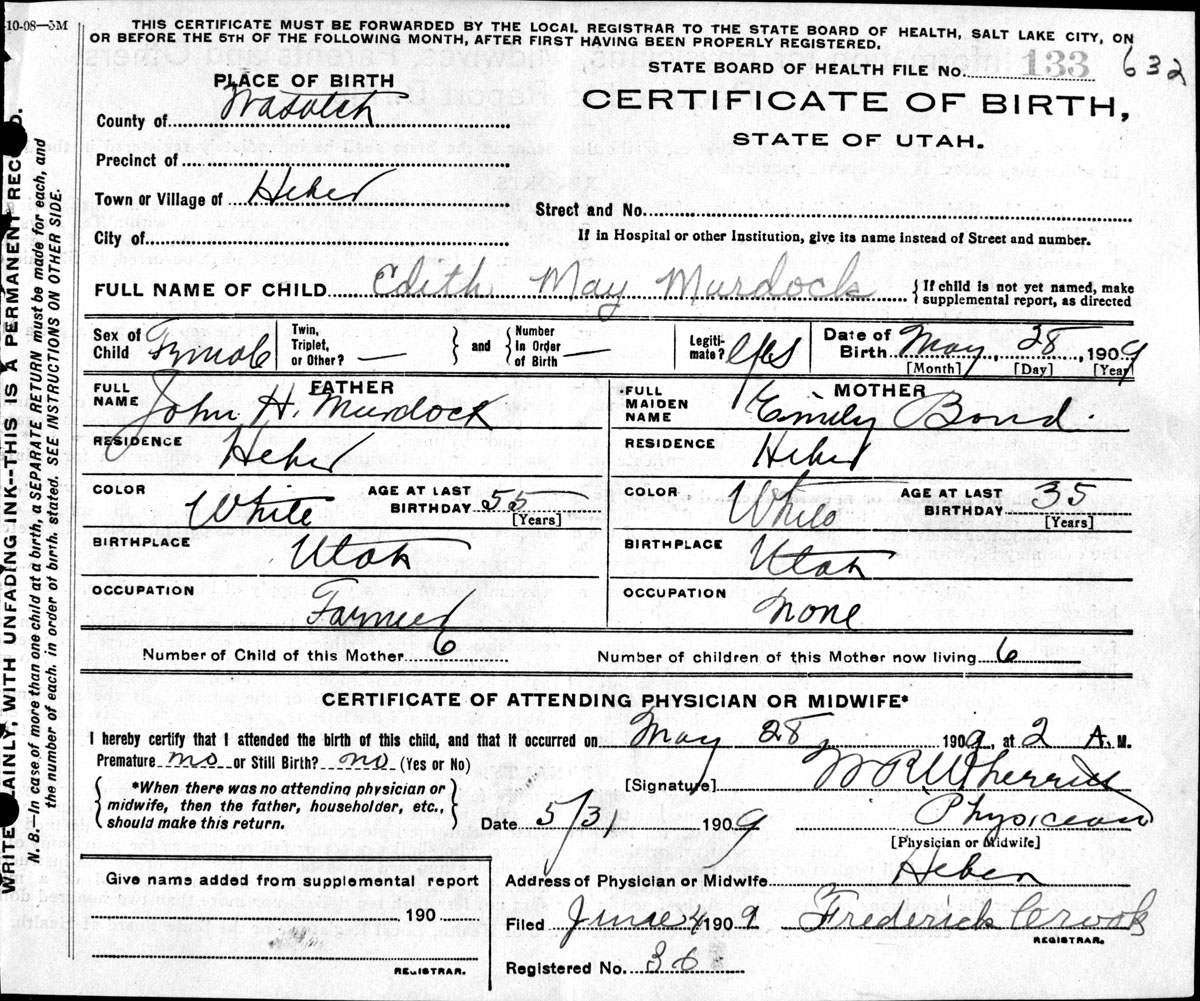 10-08-5M
THIS CERTIFICATE MUST BE FORWARDED BY THE LOCAL REGISTRAR TO THE STATE BOARD OF HEALTH, SALT LAKE CITY, ON
OR BEFORE THE 5TH OF THE FOLLOWING MONTH, AFTER FIRST HAVING BEEN PROPERLY REGISTERED.
STATE BOARD OF HEALTH FILE No. 133 632
CERTIFICATE OF BIRTH,
STATE OF UTAH.
PLACE OF BIRTH
County of Wasatch
Precinct of
Town or Village of Heber
Street and No.
City of
If in Hospital or other Institution, give its name instead of Street and number.
FULL NAME OF CHILD Edith May Murdock { If child is not yet named, make
supplemental report, as directed
Sex of Child Female
Twin, Triplet, or Other? —
and
Number In Order of Birth —
Legiti-mate? Yes
Date of Birth May, 28, 1909
[Month] [Day] [Year]
FATHER
FULL NAME John H. Murdock
RESIDENCE Heber
COLOR White
AGE AT LAST BIRTHDAY 55 [Years]
BIRTHPLACE Utah
OCCUPATION Farmer
MOTHER
FULL MAIDEN NAME Emily Bond.
RESIDENCE Heber
COLOR White
AGE AT LAST BIRTHDAY 35 [Years]
BIRTHPLACE Utah
OCCUPATION None
Number of Child of this Mother 6
Number of children of this Mother now living 6
CERTIFICATE OF ATTENDING PHYSICIAN OR MIDWIFE*
I hereby certify that I attended the birth of this child, and that it occurred on May 28 1909, at 2 A. M.
Premature no or Still Birth? no (Yes or No)
*When there was no attending physician or
midwife, then the father, householder, etc.,
should make this return.
[Signature] W R Wherritt
Date 5/31 1909
Physician
[Physician or Midwife]
Address of Physician or Midwife Heber
Give name added from supplemental report
190
REGISTRAR.
Filed June 4 1909 Frederick Crook
REGISTRAR.
Registered No. 36
WRITE PLAINLY, WITH UNFADING INK--THIS IS A PERMANENT RECORD.
N. B.—In case of more than one child at a birth, a SEPARATE RETURN must be made for each, and
the number of each, in order of birth, stated. SEE INSTRUCTIONS ON OTHER SIDE.